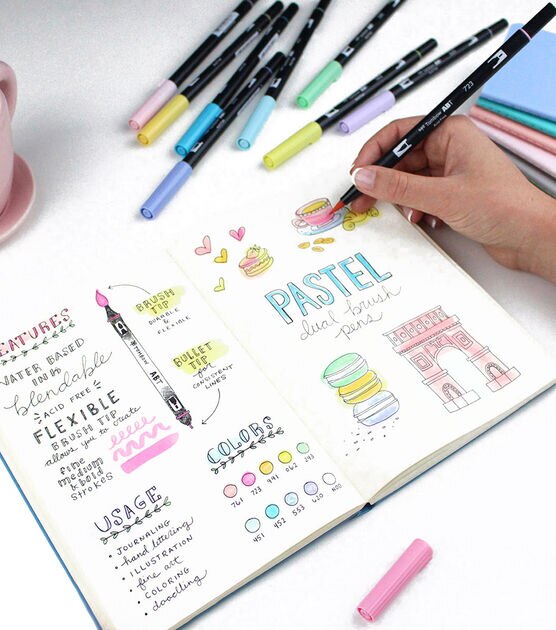 EATURES
WATER BASED
INK
blendable
ACID FREE
FLEXIBLE
BRUSH TIP
allows you to create
fine
medium
& bold
strokes
USAGE
• JOURNALING
• hand lettering
• ILLUSTRATION
• fine art
• COLORING
• doodling
BRUSH
TIP
DURABLE
&
FLEXIBLE
Tombow ABT
BULLET
TIP
for
CONSISTENT
LINES
COLORS
761 723 991 062 243
451 452 553 620 N00
PASTEL
dual brush
pens
Tombow ABT
723